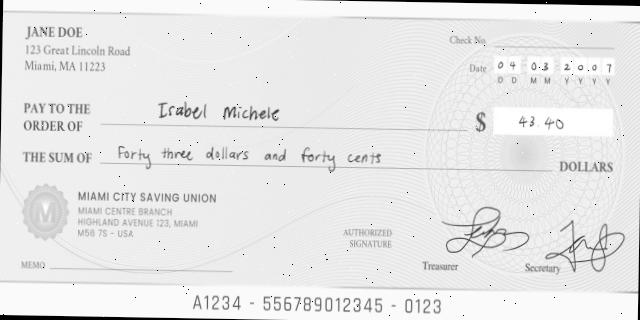 JANE DOE
123 Great Lincoln Road
Miami, MA 11223
Check No.
Date 04 03 2007
D D M M Y Y Y Y
PAY TO THE
ORDER OF Isabel Michele
$ 43.40
THE SUM OF Forty three dollars and forty cents DOLLARS
M
MIAMI CITY SAVING UNION
MIAMI CENTRE BRANCH
HIGHLAND AVENUE 123, MIAMI
M56 7S - USA
AUTHORIZED
SIGNATURE
Treasurer
Secretary
MEMO
A1234 - 556789012345 - 0123